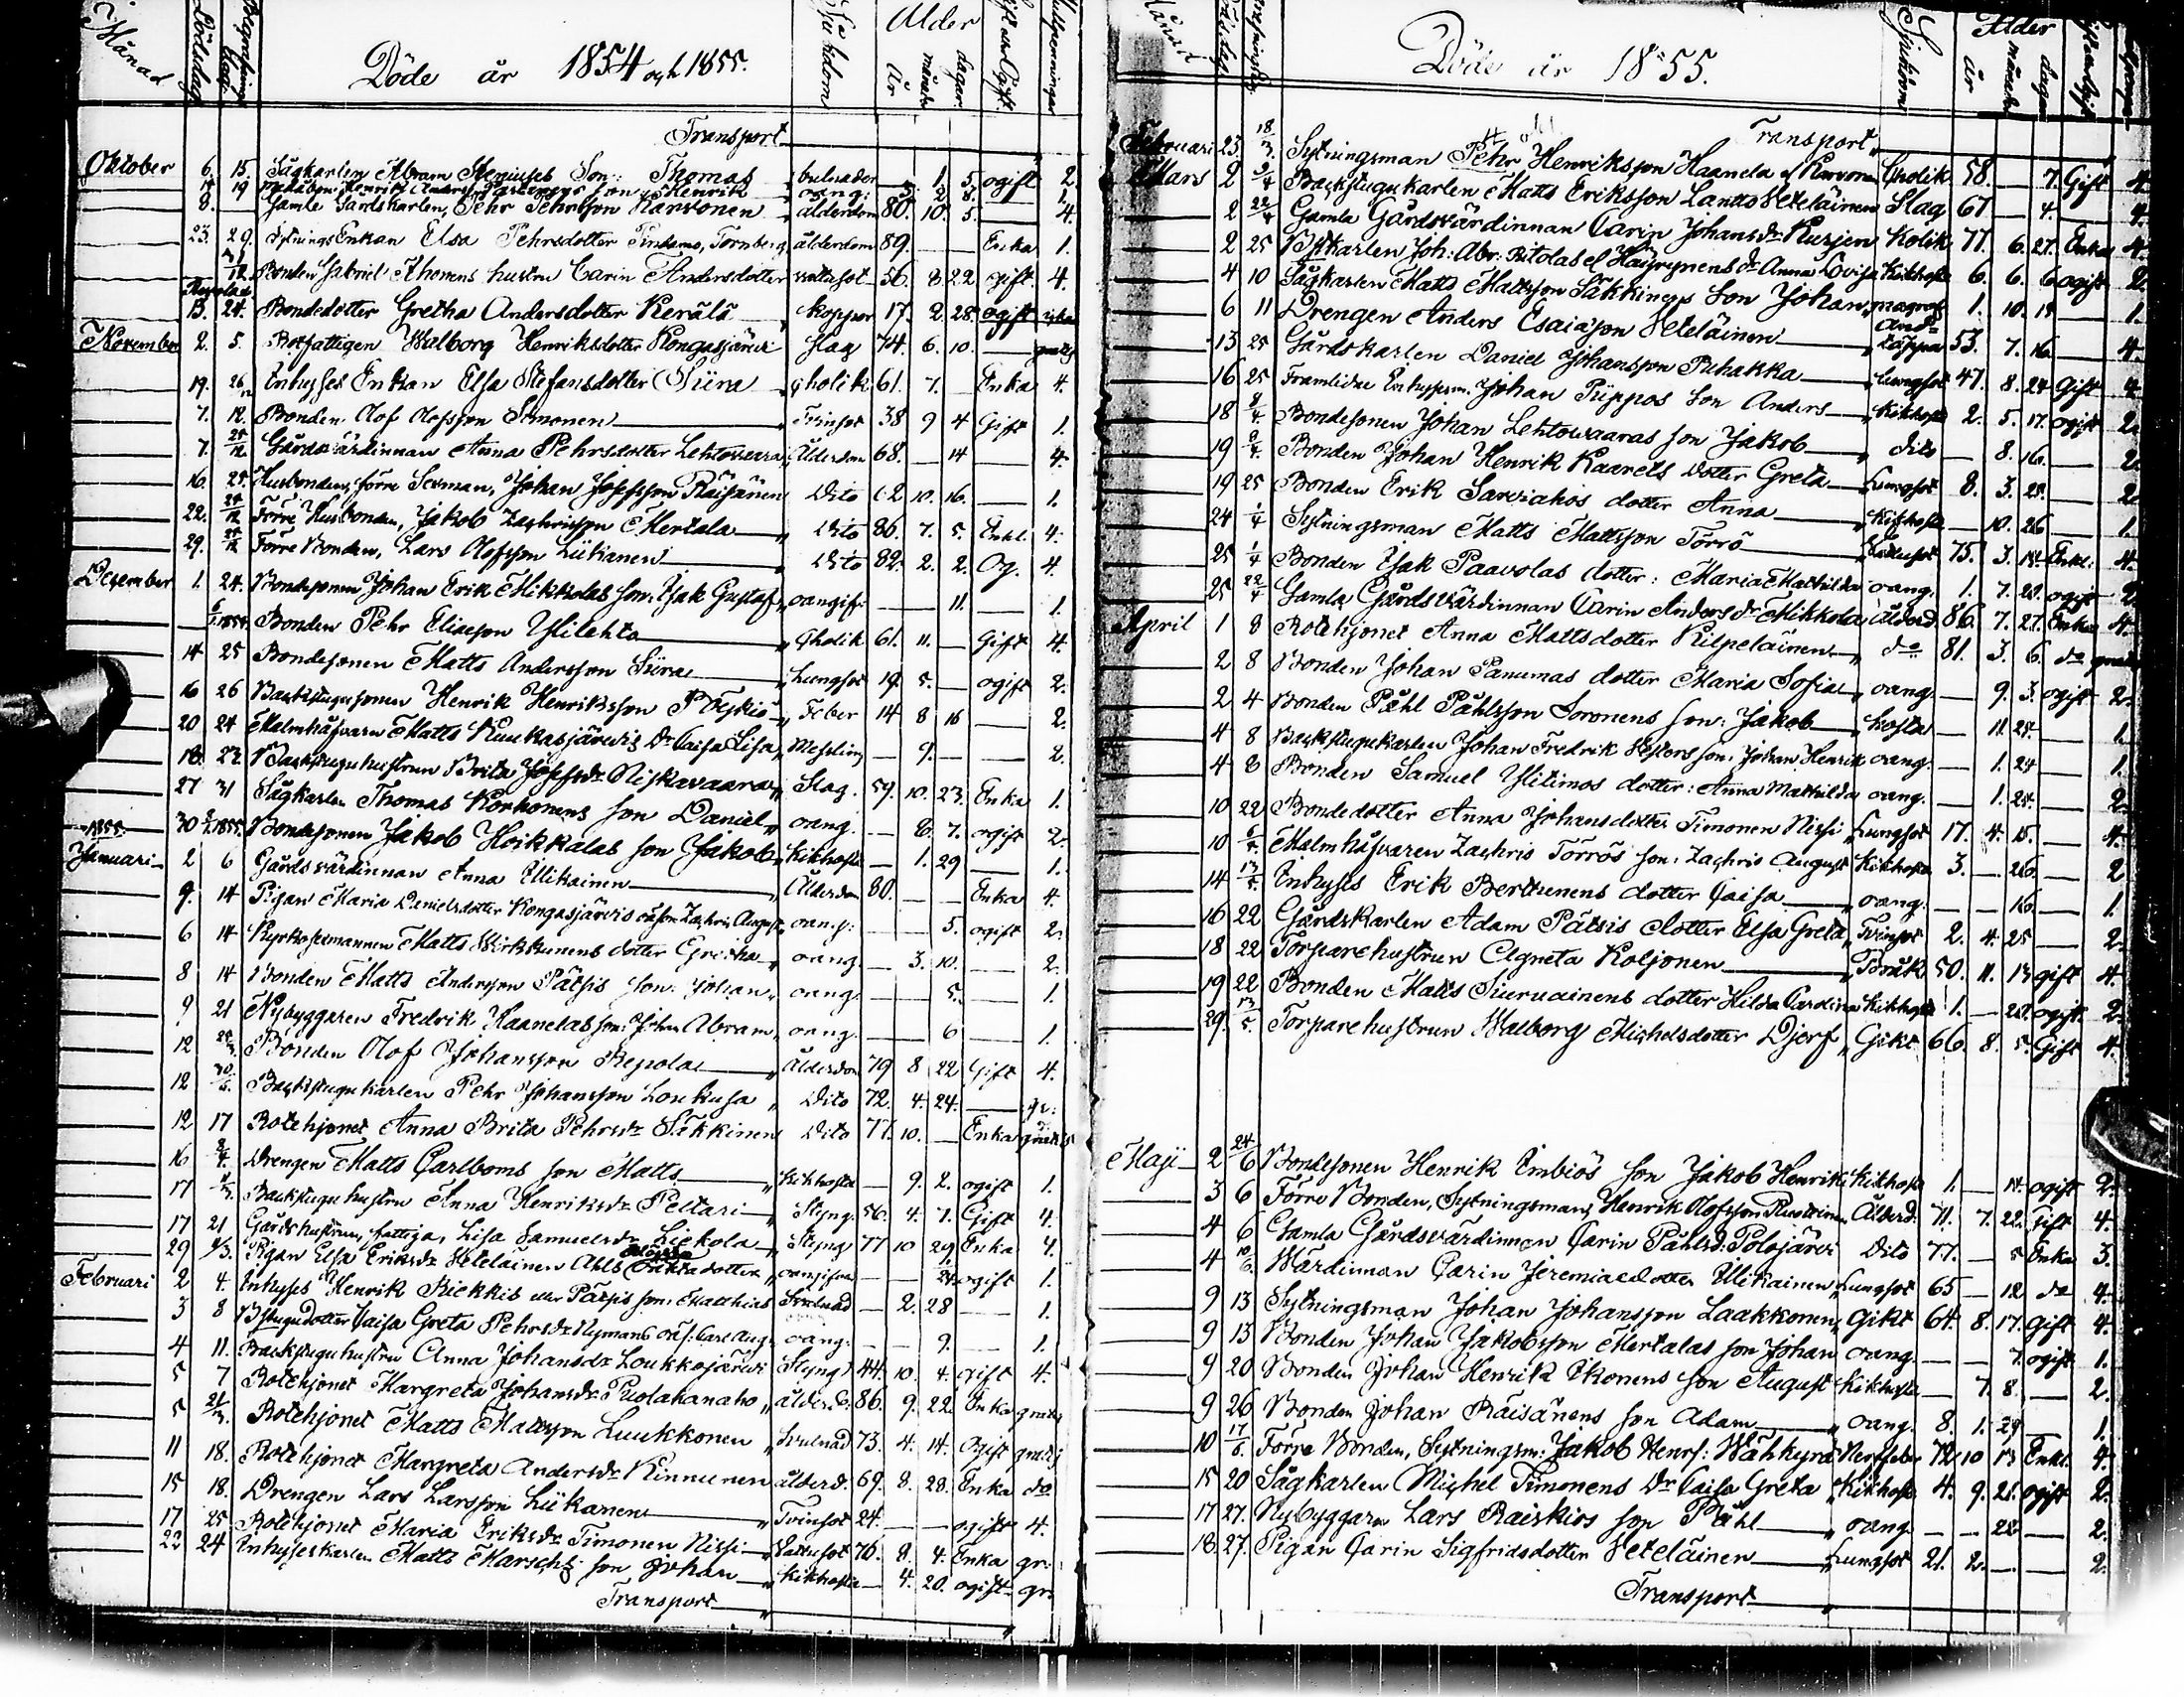 Månad Dödsdag Begrafningsdag Döde år 1854 och 1855. Sjukdom Ålder år månad. dagar. Gift eller Ogift.
Transport
Oktober 6. 15. Sågkarlen Abram Steniuses Son: Thomas 1. 5. ogift 2.
8. Gamle Gårdskarlen, Pehr Pehrsson Karvonen ålderdom 80. 10. 5. 4.
23. 29. Sytnings Enkan Elsa Pehrsdotter Tornberg, ålderdom 89. Enka 1.
Bonden Gabriel Thomens hustru Carin Andersdotter vattusot 56. 8. 22. gift. 4.
13. 24. Bondedotter Gretha Andersdotter Kerälä koppor 17. 2. 28. ogift
November 2. 5. Rotfattigen Walborg Henriksdotter Kongasjärwi slag 74. 6. 10.
19. 26 Inhyses Enkan Elsa Stefansdotter Siira cholik 61. 7. Enka 4.
7. 12. Bonden Olof Olofsson Simonen Tvinsot 38 9 4 Gift 1.
7. Gårdsvärdinnan Anna Pehrsdotter Lehtowaara Ålderdom 68. 14 4.
16. 25. Husbonden, förre Sexman, Johan Josefsson Räisänen Dito 62 10. 16. 1.
22. Förre Husbonden, Jakob Zachrisson Mertala Dito 86. 7. 5. Enkl. 4.
29. Förre Bonden, Lars Olofsson Liikanen Dito 82. 2. 2. Og. 4.
December 1. 24. Bondesonen Johan Erik Mikkolas son: Isak Gustaf oangif. 11. 1.
Bonden Pehr Eliasson Ylilehto Cholik 61. 11. Gift 4.
14 25 Bondesonen Matts Andersson Siira Lungsot 19. 5. ogift 2.
16 26 Backstugusonen Henrik Henriksson Pöykiö Feber 14 8 16 2.
20 24 Malmhåfvaren Matts Kuukasjärwis Dr Caisa Lisa Messling 9. 2.
18. 27 Backstuguhustrun Brita Josefsdr Niskavaara Slag. 59. 10. 23. Enka 1.
27 31 Sågkarlen Thomas Korhonens son Daniel oang. 8. 7. ogift 2.
1855. 30 Bondesonen Jakob Hoikkalas son Jakob Kikhosta 1. 29 1.
Januari 2 6 Gårdsvärdinnan Anna Ulikainen Ålderdom 80. Enka 4.
9. 14 Pigan Maria Danielsdotter Kongasjärwis oä son Zachris August oang. 5. ogift 2.
6 14 Kyrkosexmannen Matts Wirkkunens dotter Greta oang. 3. 10. 2.
8 14 Bonden Matts Andersson Pätsis son: Johan oang. 5. 1.
9 21 Nybyggaren Fredrik Haanelas son: Johan Abram oang. 6 1.
12 Bonden Olof Johansson Repola Ålderdom 79 8 22 Gift 4.
12 Backstugukarlen Pehr Johansson Loukusa Dito 72. 4. 24.
12 17 Rotehjonet Anna Brita Pehrsdr Säkkinen Dito 77. 10. Enka gratis
16 Drengen Matts Carlboms son Matts Kikhosta 9. 2. ogift 1.
17 Backstuguhustru Anna Henriksdr Peltari Styng. 56. 4. 7. Gift 4.
17 21 Gårdshustrun, fattiga, Lisa Samuelsdr Liekola Styng 77 10 29 Enka 4.
29 Pigan Elsa Eriksdr Veteläinen oangifven ogift 1.
Februari 2 4. Inhyses Henrik Riekkis eller Pätsis son: Matthias Svulnad 2. 28 1.
3 8 Bstugudotter Caisa Greta Pehrsdr Nymans oä s: Carl Aug. oang. 9. 1.
4 11. Backstuguhustru Anna Johansdr Loukkojärwi Styng 44. 10. 4. gift 4.
5 7 Rotehjonet Margreta Johansdr Puolakanaho ålderd. 86. 9. 22. Enka gratis
5 Rotehjonet Matts Mattsson Luukkonen Svulnad 73. 4. 14. Ogift gratis
11 18. Rotehjonet Margreta Andersdr Kinnunen ålderd. 69. 8. 28. Enka do
15 18. Drengen Lars Larsson Liikanen Tvinsot 24. ogift 4.
17 25 Rotehjonet Maria Eriksdr Timonen Nissi Vattusot 76. 8. 4. Enka gr.
22 24 Inhyseskarlen Matts Marschs son Johan Kikhosta 4. 20. ogift gr.
Transport
Döde år 1855. Sjukdom Ålder år månad dagar
Transport
Februari 23 18/3. Sytningsman Pehr Henriksson Haanela el Karvonen Cholik 58. 7. Gift 4.
Mars 2 Backstugukarlen Matts Eriksson Lantto Veteläinen Slag 67 4. 4.
2 22/4 Gamla Gårdsvärdinnan Carin Johansdr Kurjen Kolik 77. 6. 27. Enka 4.
2 25 Bstkarlen Joh: Abr: Ritolas el Häyrynens dr Anna Lovisa Kikhosta 6. 6. 6 ogift 2.
4 10 Sågkarlen Matts Mattsson Säkkinens Son Johan 1. 10. 19 1.
6 11 Drengen Anders Esaiasson Veteläinen 53. 7. 16. 4.
13 25 Gårdskarlen Daniel Johansson Puhakka Lungsot 47. 8. 24 Gift 4.
16 25 Framlidne Inhysesm. Johan Piippos Son Anders Kikhosta 2. 5. 17. ogift 2.
18 Bondesonen Johan Lehtowaaras son Jakob dito 8. 16. 2.
19 Bonden Johan Henrik Kaarets dotter Greta Lungsot 8. 3. 28. 2.
19 25 Bonden Erik Sarviahos dotter Anna Kikhosta 10. 26 1.
24 1/4 Sytningsman Matts Mattsson Törrö Vattusot 75. 3. 14. Enkl. 4.
25 1/4 Bonden Isak Paavolas dotter: Maria Mathilda oang. 1. 7. 28. ogift 2.
25 22/4 Gamla Gårdsvärdinnan Carin Andersdr Mikkola ålderd. 86. 7. 27. Enka 4.
April 1 8 Rotehjonet Anna Mattsdotter Kilpeläinen do 81. 3. 6. do gratis
2 8 Bonden Johan Panumas dotter Maria Sofia oang. 9. 3. ogift 2.
2 4 Bonden Påhl Påhlsson Soronens son: Jakob hosta 11. 24. 1.
4 8 Backstugukarlen Johan Fredrik Vesters son: Johan Henrik oang. 1. 24 1.
4 8 Bonden Samuel Ylitimos dotter: Anna Mathilda oang. 1. 24. 2.
10 22 Bondedotter Anna Johansdotter Timonen Nissi Lungsot 17. 4. 15. 4.
10 Malmhåfvaren Zachris Törrös son: Zachris August Kikhosta 3. 26. 2
14 13/5. Inhyses Erik Berttunens dotter Caisa oang. 16. 1.
16 22 Gårdskarlen Adam Pätsis dotter Elsa Greta Tvinsot 2. 4. 25 2.
18 22 Torparehustrun Agneta Koljonen Bråk 50. 11. 13 gift 4.
19 22 Bonden Matts Siuruainens dotter Hilda Carolina Kikhosta 1. 22. ogift. 2.
29. 13/5. Torparehustrun Walborg Michelsdotter Djerf Gikt 66. 8. 5. Gift 4.
Maji 2 24/6 Bondesonen Henrik Embiös son Jakob Henrik Kikhosta 1. 14. ogift 2.
3 6 Förre Bonden, Sytningsman, Henrik Olofsson Ålderd. 71. 7. 22. Gift 4.
4 6 Gamla Gårdsvärdinnan Carin Påhlsd. Polojärvi Dito 77. 5 Enka 3.
4 10/6. Wärdinnan Carin Jeremiaedotter Ulikainen Lungsot 65 12 do 4.
9 13 Sytningsman Johan Johansson Laakkonen Gikt 64. 8. 17. Gift 4.
9 13 Bonden Johan Jakobsson Mertalas son Johan oang. 7. ogift 1.
9 20 Bonden Johan Henrik Ikonens son August Kikhosta 7. 8. 2.
9 26 Bonden Johan Räisänens son Adam oang. 8. 1. 29 1.
10 17/6. Förre Bonden, Sytningsm: Jakob Henrs: Wähkyrä Nervfeber 72 10 13 Enkl. 4.
15 20 Sågkarlen Michel Timonens Dr Caisa Greta Kikhosta 4. 9. 21. ogift 2.
17 27. Nybyggaren Lars Raiskios son Påhl oang. 22 2.
18. 27. Pigan Carin Sigfridsdotter Veteläinen Lungsot 21. 2. 2.
Transport